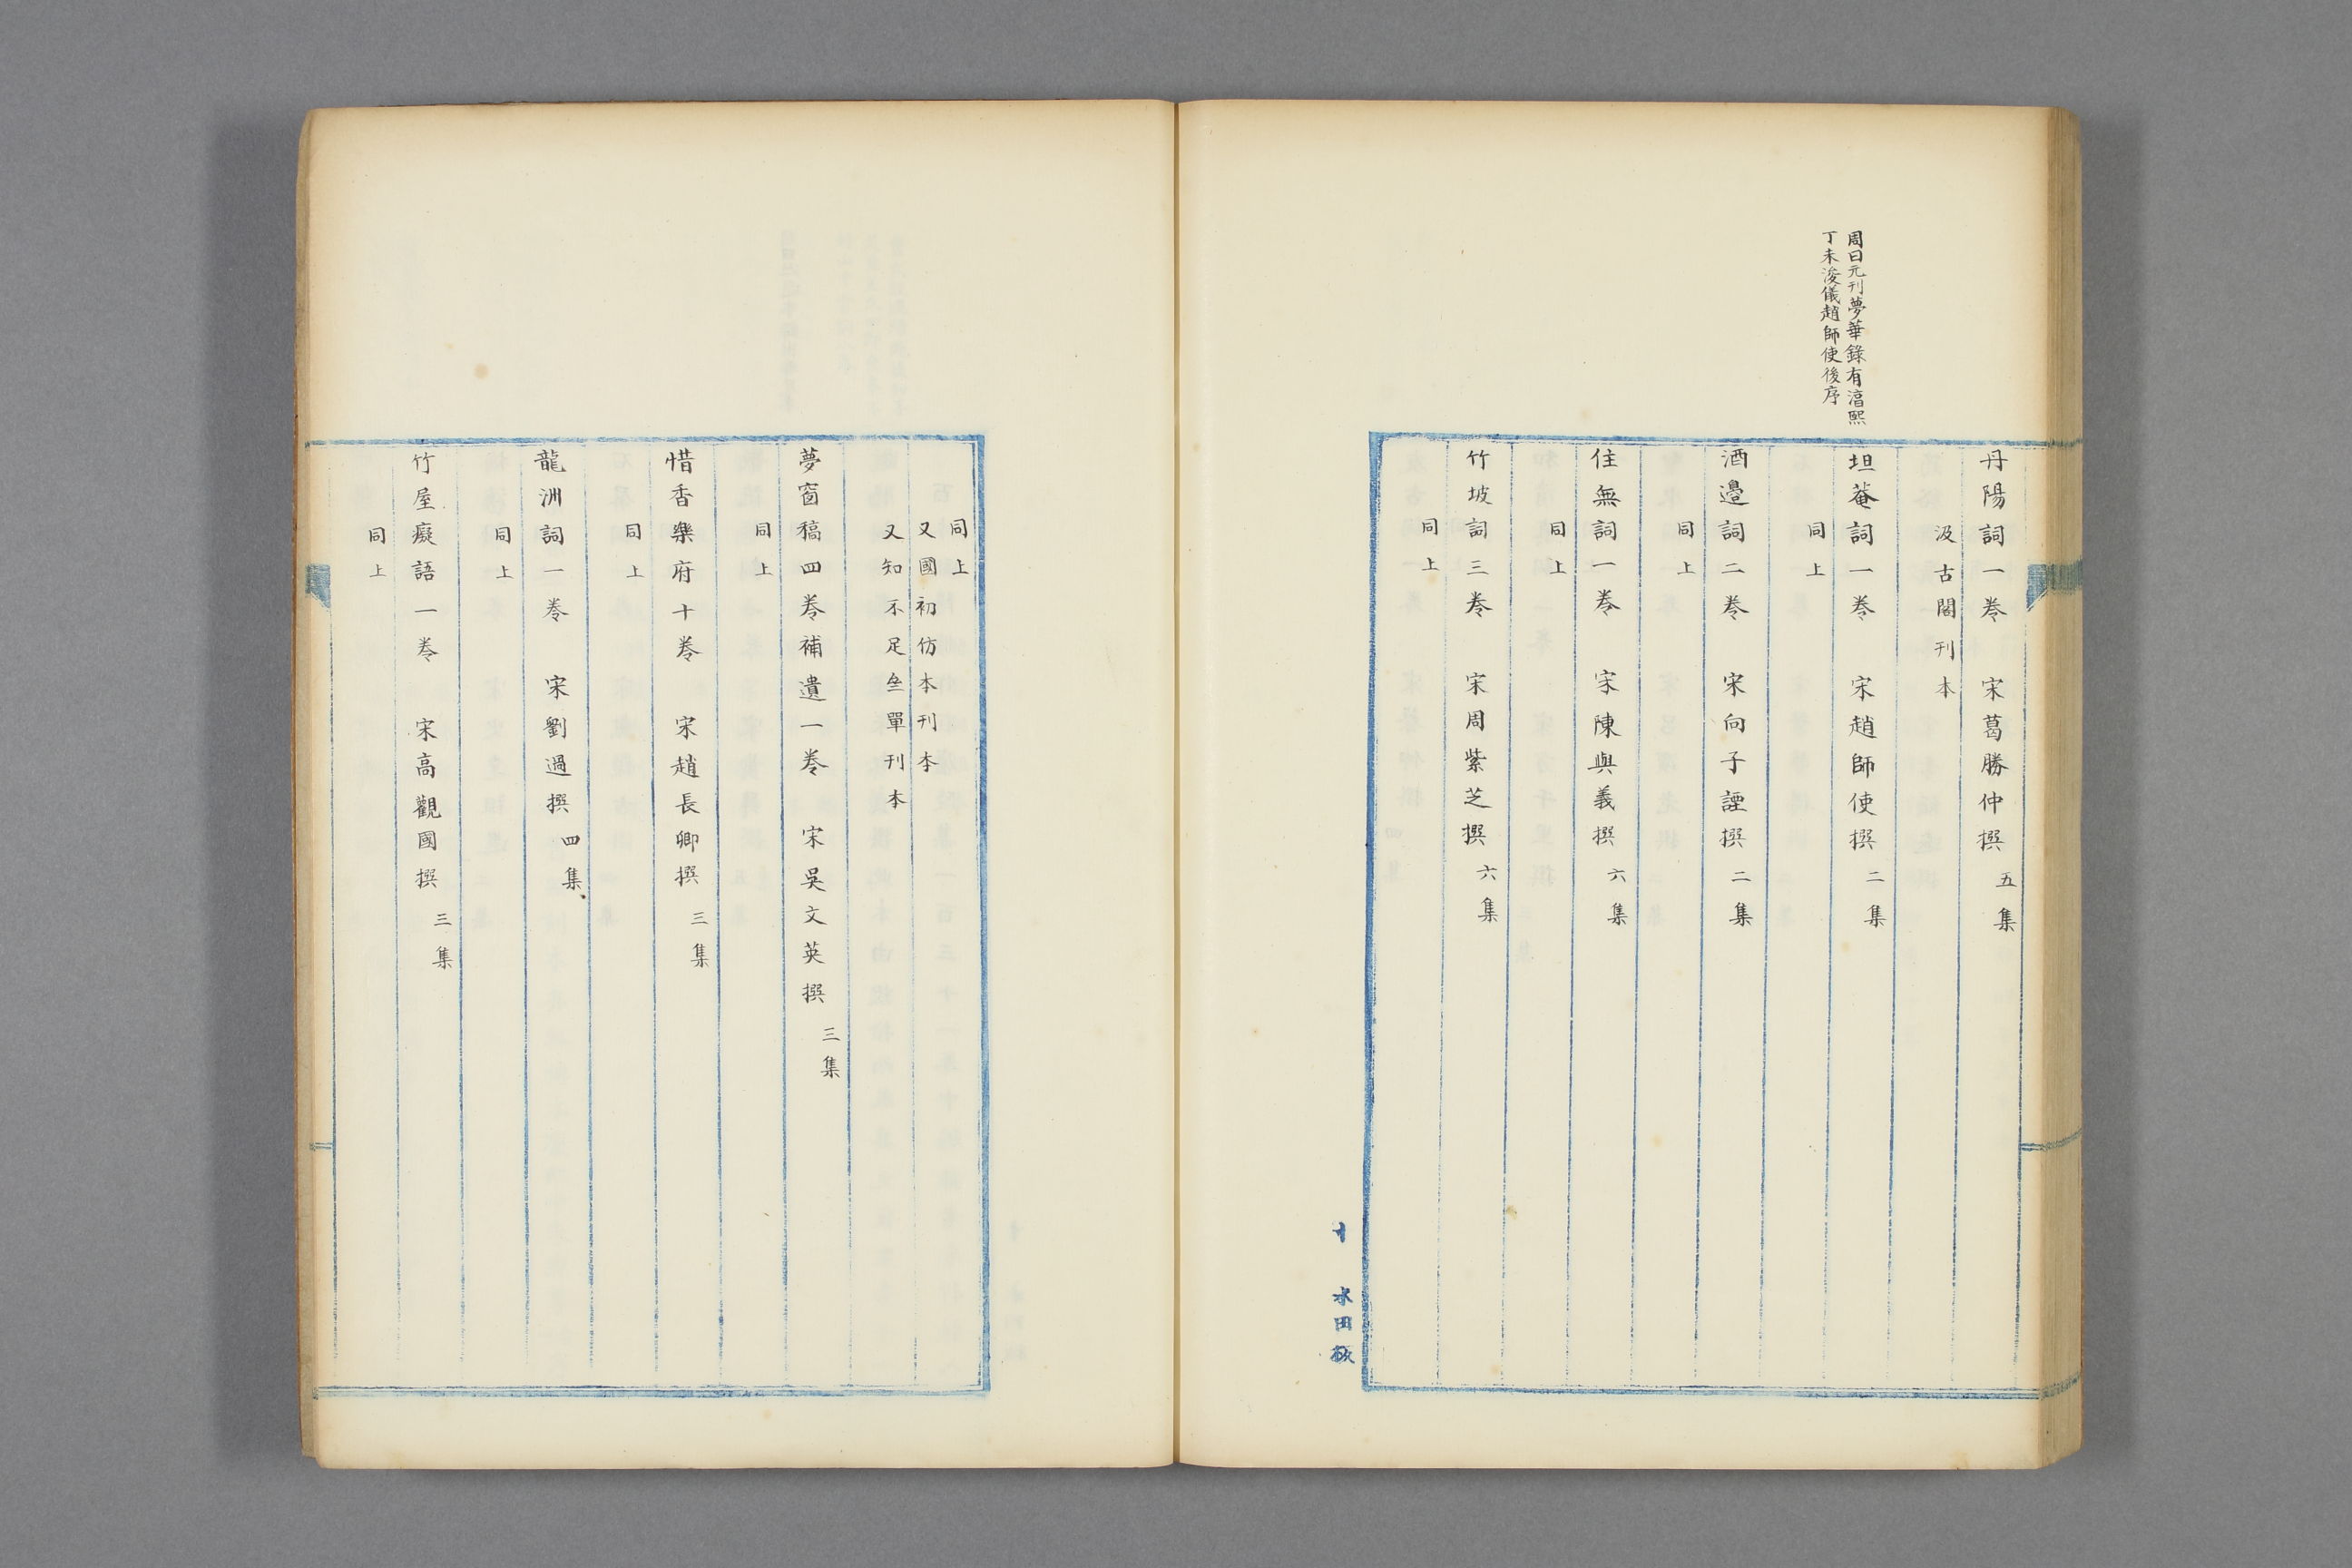 周曰元刊夢華錄有淳熙
丁未浚儀趙師使後序
丹陽詞一卷　宋葛勝仲撰　五集
汲古閣刊本
坦菴詞一卷　宋趙師使撰　二集
同上
酒邊詞二卷　宋向子諲撰　二集
同上
住無詞一卷　宋陳與義撰　六集
同上
竹坡詞三卷　宋周紫芝撰　六集
同上
十　水田
同上
又國初仿本刊本
又知不足坐單刊本
夢窗稿四卷補遺一卷　宋吳文英撰　三集
同上
惜香樂府十卷　宋趙長卿撰　三集
同上
龍洲詞一卷　宋劉過撰　四集
同上
竹屋癡語一卷　宋高觀國撰　三集
同上